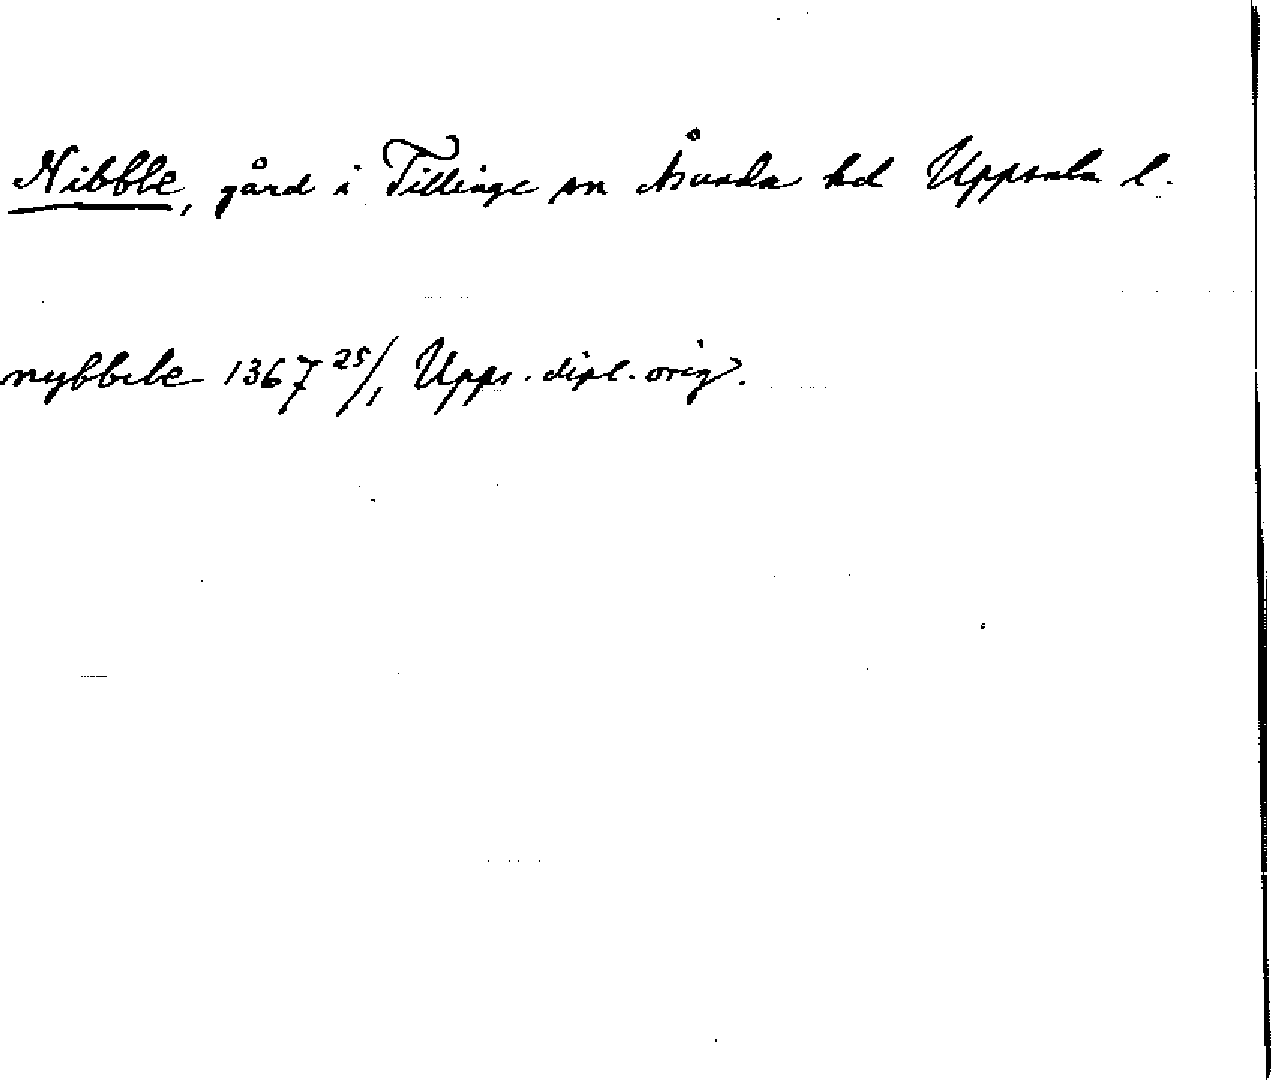 Nibble, gård i Tillinge sn Åsunda hd Uppsala l.
nybbele 1367 25/1, Upps. dipl. orig.